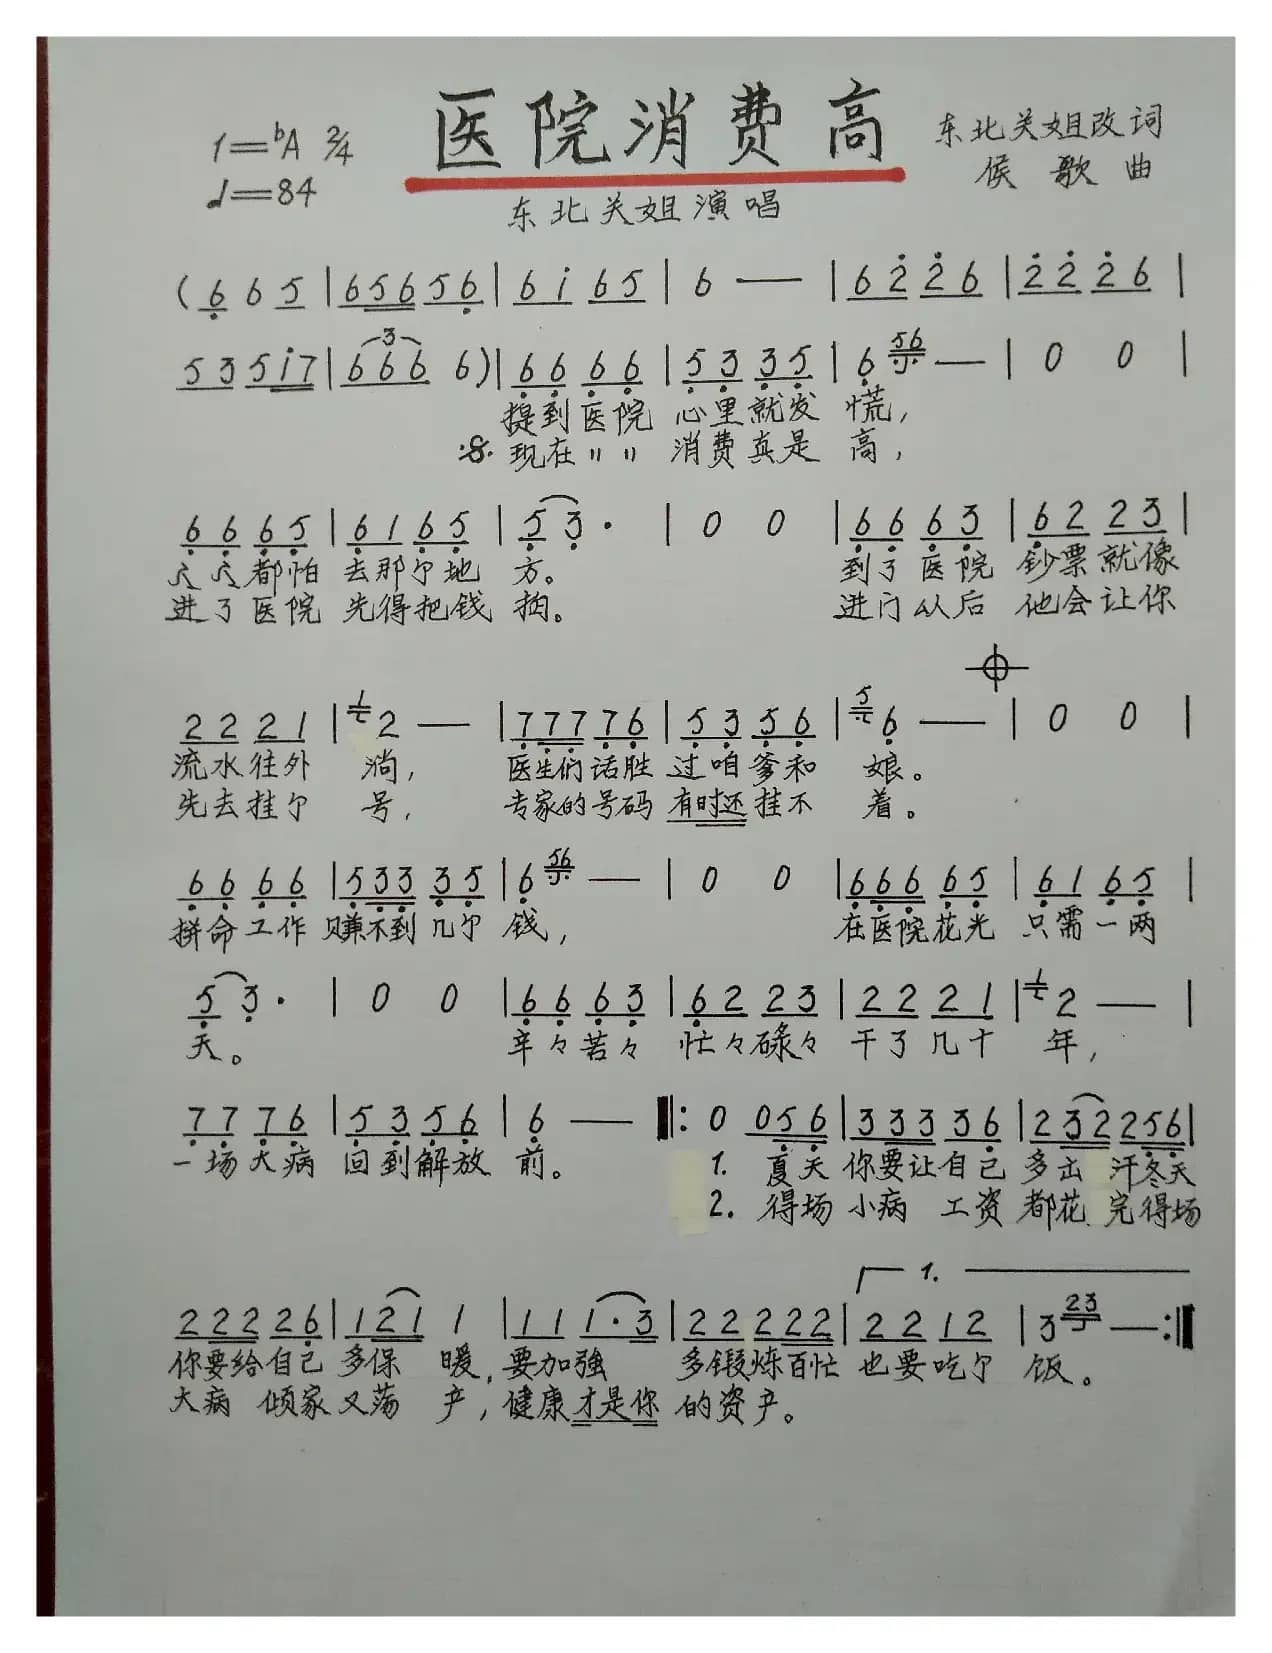 医院消费高
1=♭A 2/4
♩=84
东北关姐改词
侯歌曲
东北关姐演唱
(6 6 5 | 6 5 6 5 6 | 6 i 6 5 | 6 — | 6 2 2 6 | 2 2 2 6 |
5 3 5 i 7 | 6 6 6 6) | 6 6 6 6 | 5 3 3 5 | 6 56 — | 0 0 |
提到医院 心里就发 慌,
现在〃〃 消费真是 高,
6 6 6 5 | 6 1 6 5 | 5 3 · | 0 0 | 6 6 6 3 | 6 2 2 3 |
人人都怕 去那尔地 方。 到了医院 钞票就像
进了医院 先得把钱 掏。 进门以后 他会让你
2 2 2 1 | 1 2 — | 7 7 7 7 6 | 5 3 5 6 | 5 6 — | 0 0 |
流水往外 淌, 医生们话胜 过咱爹和 娘。
先去挂尔 号, 专家的号码 有时还挂不 着。
6 6 6 6 | 5 3 3 3 5 | 6 56 — | 0 0 | 6 6 6 6 5 | 6 1 6 5 |
拼命工作 赚不到几尔 钱, 在医院花光 只需一两
5 3 · | 0 0 | 6 6 6 3 | 6 2 2 3 | 2 2 2 1 | 1 2 — |
天。 辛々苦々 忙々碌々 干了几十 年,
7 7 7 6 | 5 3 5 6 | 6 — |: 0 0 5 6 | 3 3 3 3 6 | 2 3 2 2 5 6 |
一场大病 回到解放 前。 1. 夏天 你要让自己 多出 汗冬天
2. 得场 小病 工资 都花 完得场
2 2 2 2 6 | 1 2 1 1 | 1 1 1 · 3 | 2 2 2 2 2 | 2 2 1 2 | 3 23 — :|
1.
你要给自己 多保 暖,要加强 多锻炼百忙 也要吃尔 饭。
大病 倾家又荡 产,健康才是你 的资产。